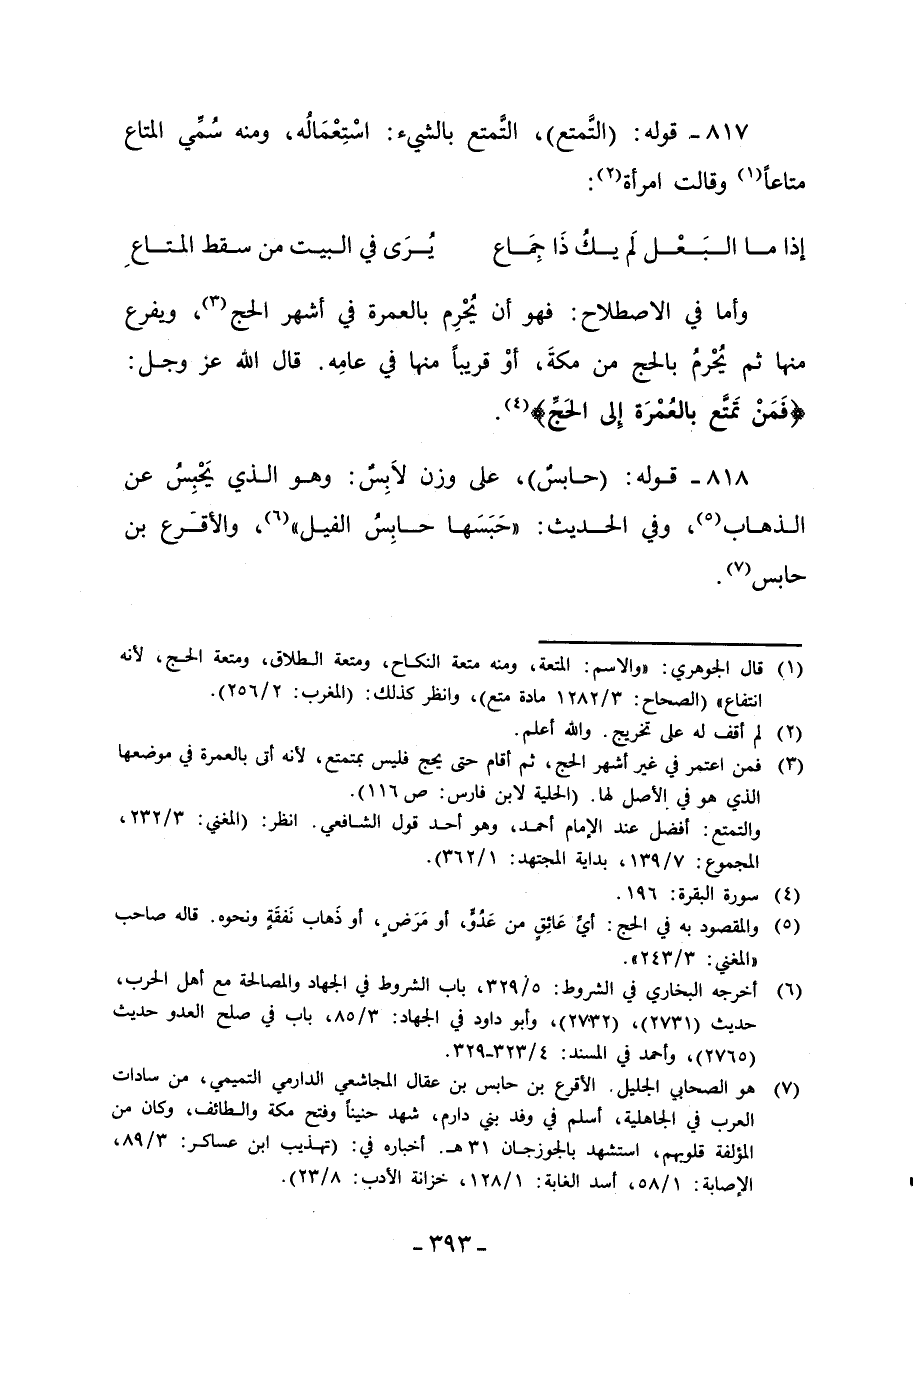 ٨١٧ - قوله: (التَّمتع)، التَّمتع بالشيء: اسْتِعْمَالُه، ومنه سُمِّي المتاع
متاعاً(١) وقالت امرأة(٢):
إذا مـا الـبَـعْـل لَم يـكُ ذَا جِمَاع يُـرَى في البيت من سـقط المتـاعِ
وأما في الاصطلاح: فهو أن يُحْرِم بالعمرة في أشهر الحج(٣)، ويفرغ
منها ثم يُحْرمُ بالحج من مكةَ، أوْ قريباً منها في عامِه. قال الله عز وجـل:
﴿فَمَنْ تَمَتَّع بالعُمْرَة إلى الحَجِّ﴾(٤).
٨١٨ - قـوله: (حـابسٌ)، على وزن لاَبِسٌ: وهـو الـذي يَحْبِسُ عن
الـذهـاب(٥)، وفي الحـديث: «حَبَسَهـا حـابِسُ الفيـل»(٦)، والأقـرع بن
حابس(٧).
(١) قال الجوهري: «والاسم: المتعة، ومنه متعة النكـاح، ومتعة الـطلاق، ومتعة الحـج، لأنه
انتفاع» (الصحاح: ١٢٨٢/٣ مادة متع)، وانظر كذلك: (المغرب: ٢٥٦/٢).
(٢) لم أقف له على تخريج. والله أعلم.
(٣) فمن اعتمر في غير أشهر الحج، ثم أقام حتى يحج فليس بمتمتع، لأنه أتى بالعمرة في موضعها
الذي هو في الأصل لها. (الحلية لابن فارس: ص ١١٦).
والتمتع: أفضل عند الإمام أحمـد، وهو أحـد قول الشـافعي. انظر: (المغني: ٢٣٢/٣،
المجموع: ١٣٩/٧، بداية المجتهد: ٣٦٢/١).
(٤) سورة البقرة: ١٩٦.
(٥) والمقصود به في الحج: أيُّ عَائِقٍ من عَدُوٍّ، أو مَرَضٍ، أو ذَهاب نَفقَةٍ ونحوه. قاله صاحب
«المغني: ٢٤٣/٣».
(٦) أخرجه البخاري في الشروط: ٣٢٩/٥، باب الشروط في الجهاد والمصالحة مع أهل الحرب،
حديث (٢٧٣١)، (٢٧٣٢)، وأبو داود في الجهاد: ٨٥/٣، باب في صلح العدو حديث
(٢٧٦٥)، وأحمد في المسند: ٣٢٣/٤-٣٢٩.
(٧) هو الصحابي الجليل. الأقرع بن حابس بن عقال المجاشعي الدارمي التميمي، من سادات
العرب في الجاهلية، أسلم في وفد بني دارم، شهد حنيناً وفتح مكة والـطائف، وكان من
المؤلفة قلوبهم، استشهد بالجوزجـان ٣١ هـ. أخباره في: (تهذيب ابن عساكـر: ٨٩/٣،
الإصابة: ٥٨/١، أسد الغابة: ١٢٨/١، خزانة الأدب: ٢٣/٨).
- ٣٩٣ -